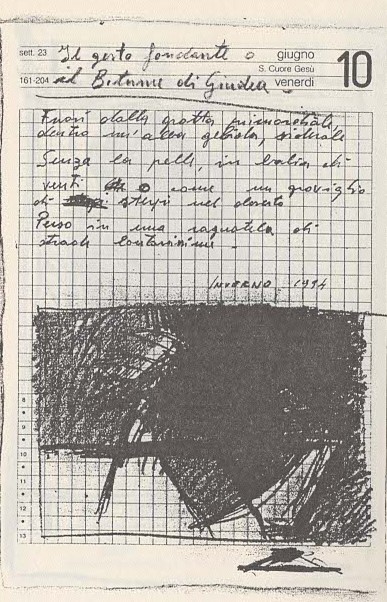 sett. 23 giugno 10
S. Cuore Gesù
161-204 venerdì
Il gesto fondante o
il Bitume di Giudea
Fuori dalla grotta primordiale,
dentro un'alba gelida, siderale
Senza la pelle, in balia di
venti o come un groviglio
di sterpi nel deserto
Perso in una ragnatela di
strade lontanissime.
INVERNO 1994
8
9
10
11
12
13